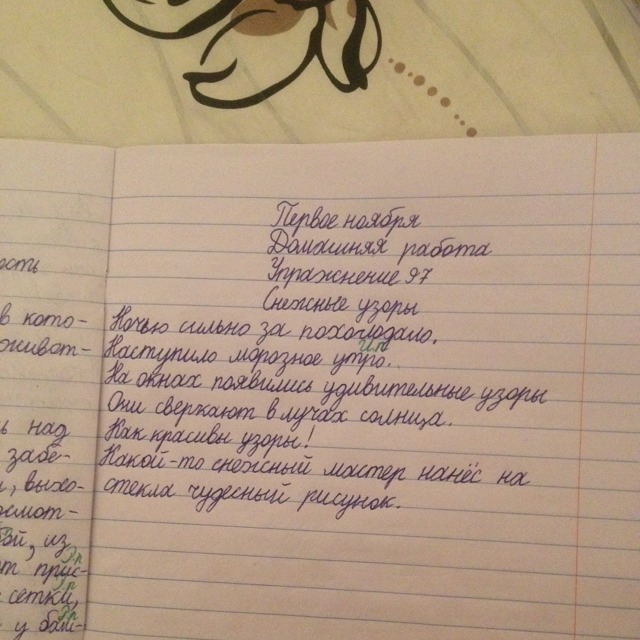 ость
в кото-
живот-
ь над
забе-
, выхо-
смот-
ой, из
т прис-
сетки,
у
Первое ноября
Домашняя работа
Упражнение 97
Снежные узоры
Ночью сильно за похолодало.
И.п
Наступило морозное утро.
На окнах появились удивительные узоры
Они сверкают в лучах солнца.
Как красивы узоры!
Какой-то снежный мастер нанёс на
стекла чудесный рисунок.